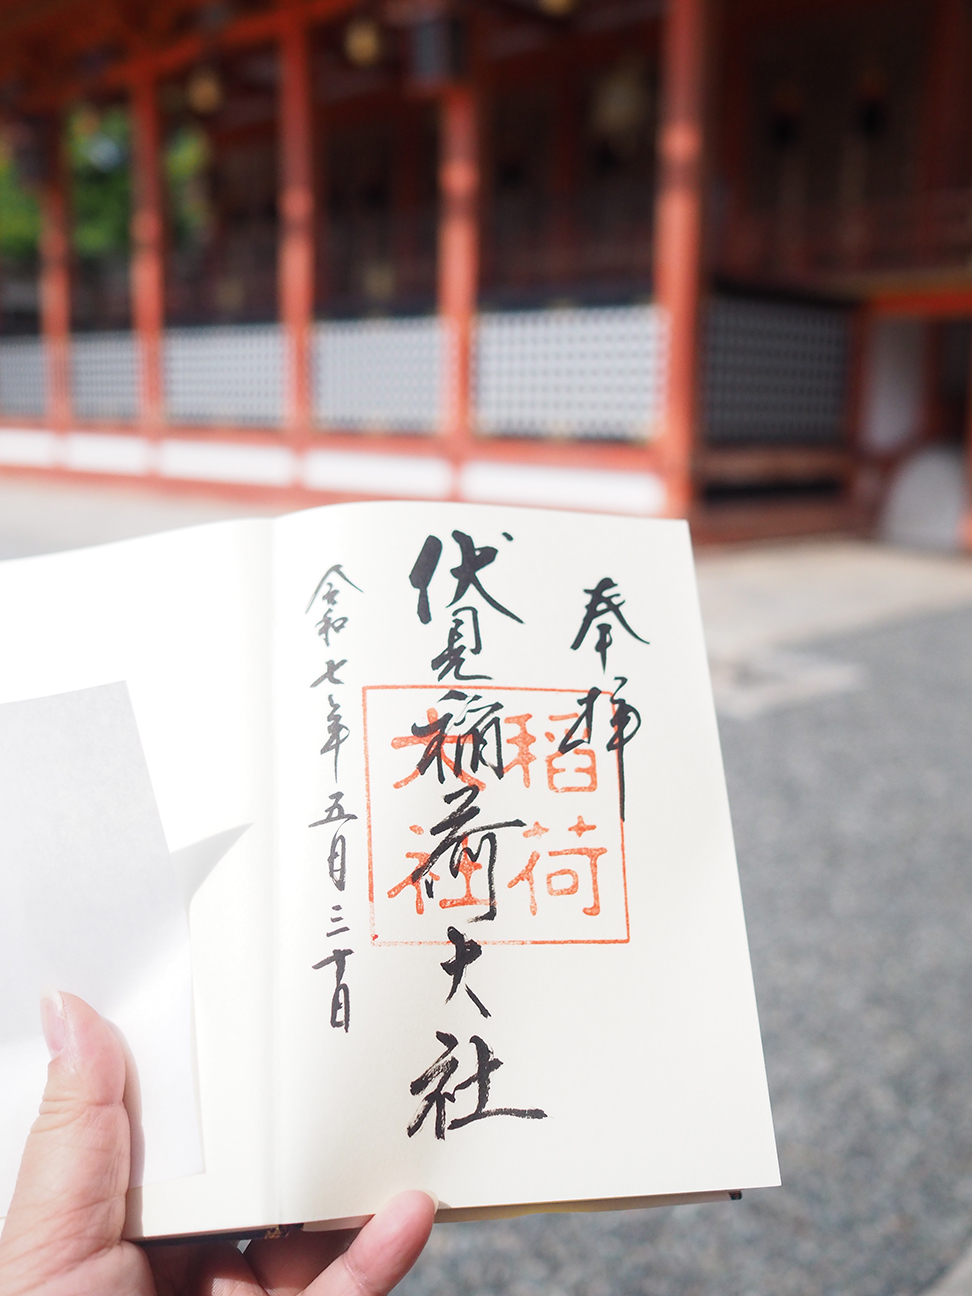 奉拝
伏見稲荷大社
稲荷
大社
令和七年五月三十日